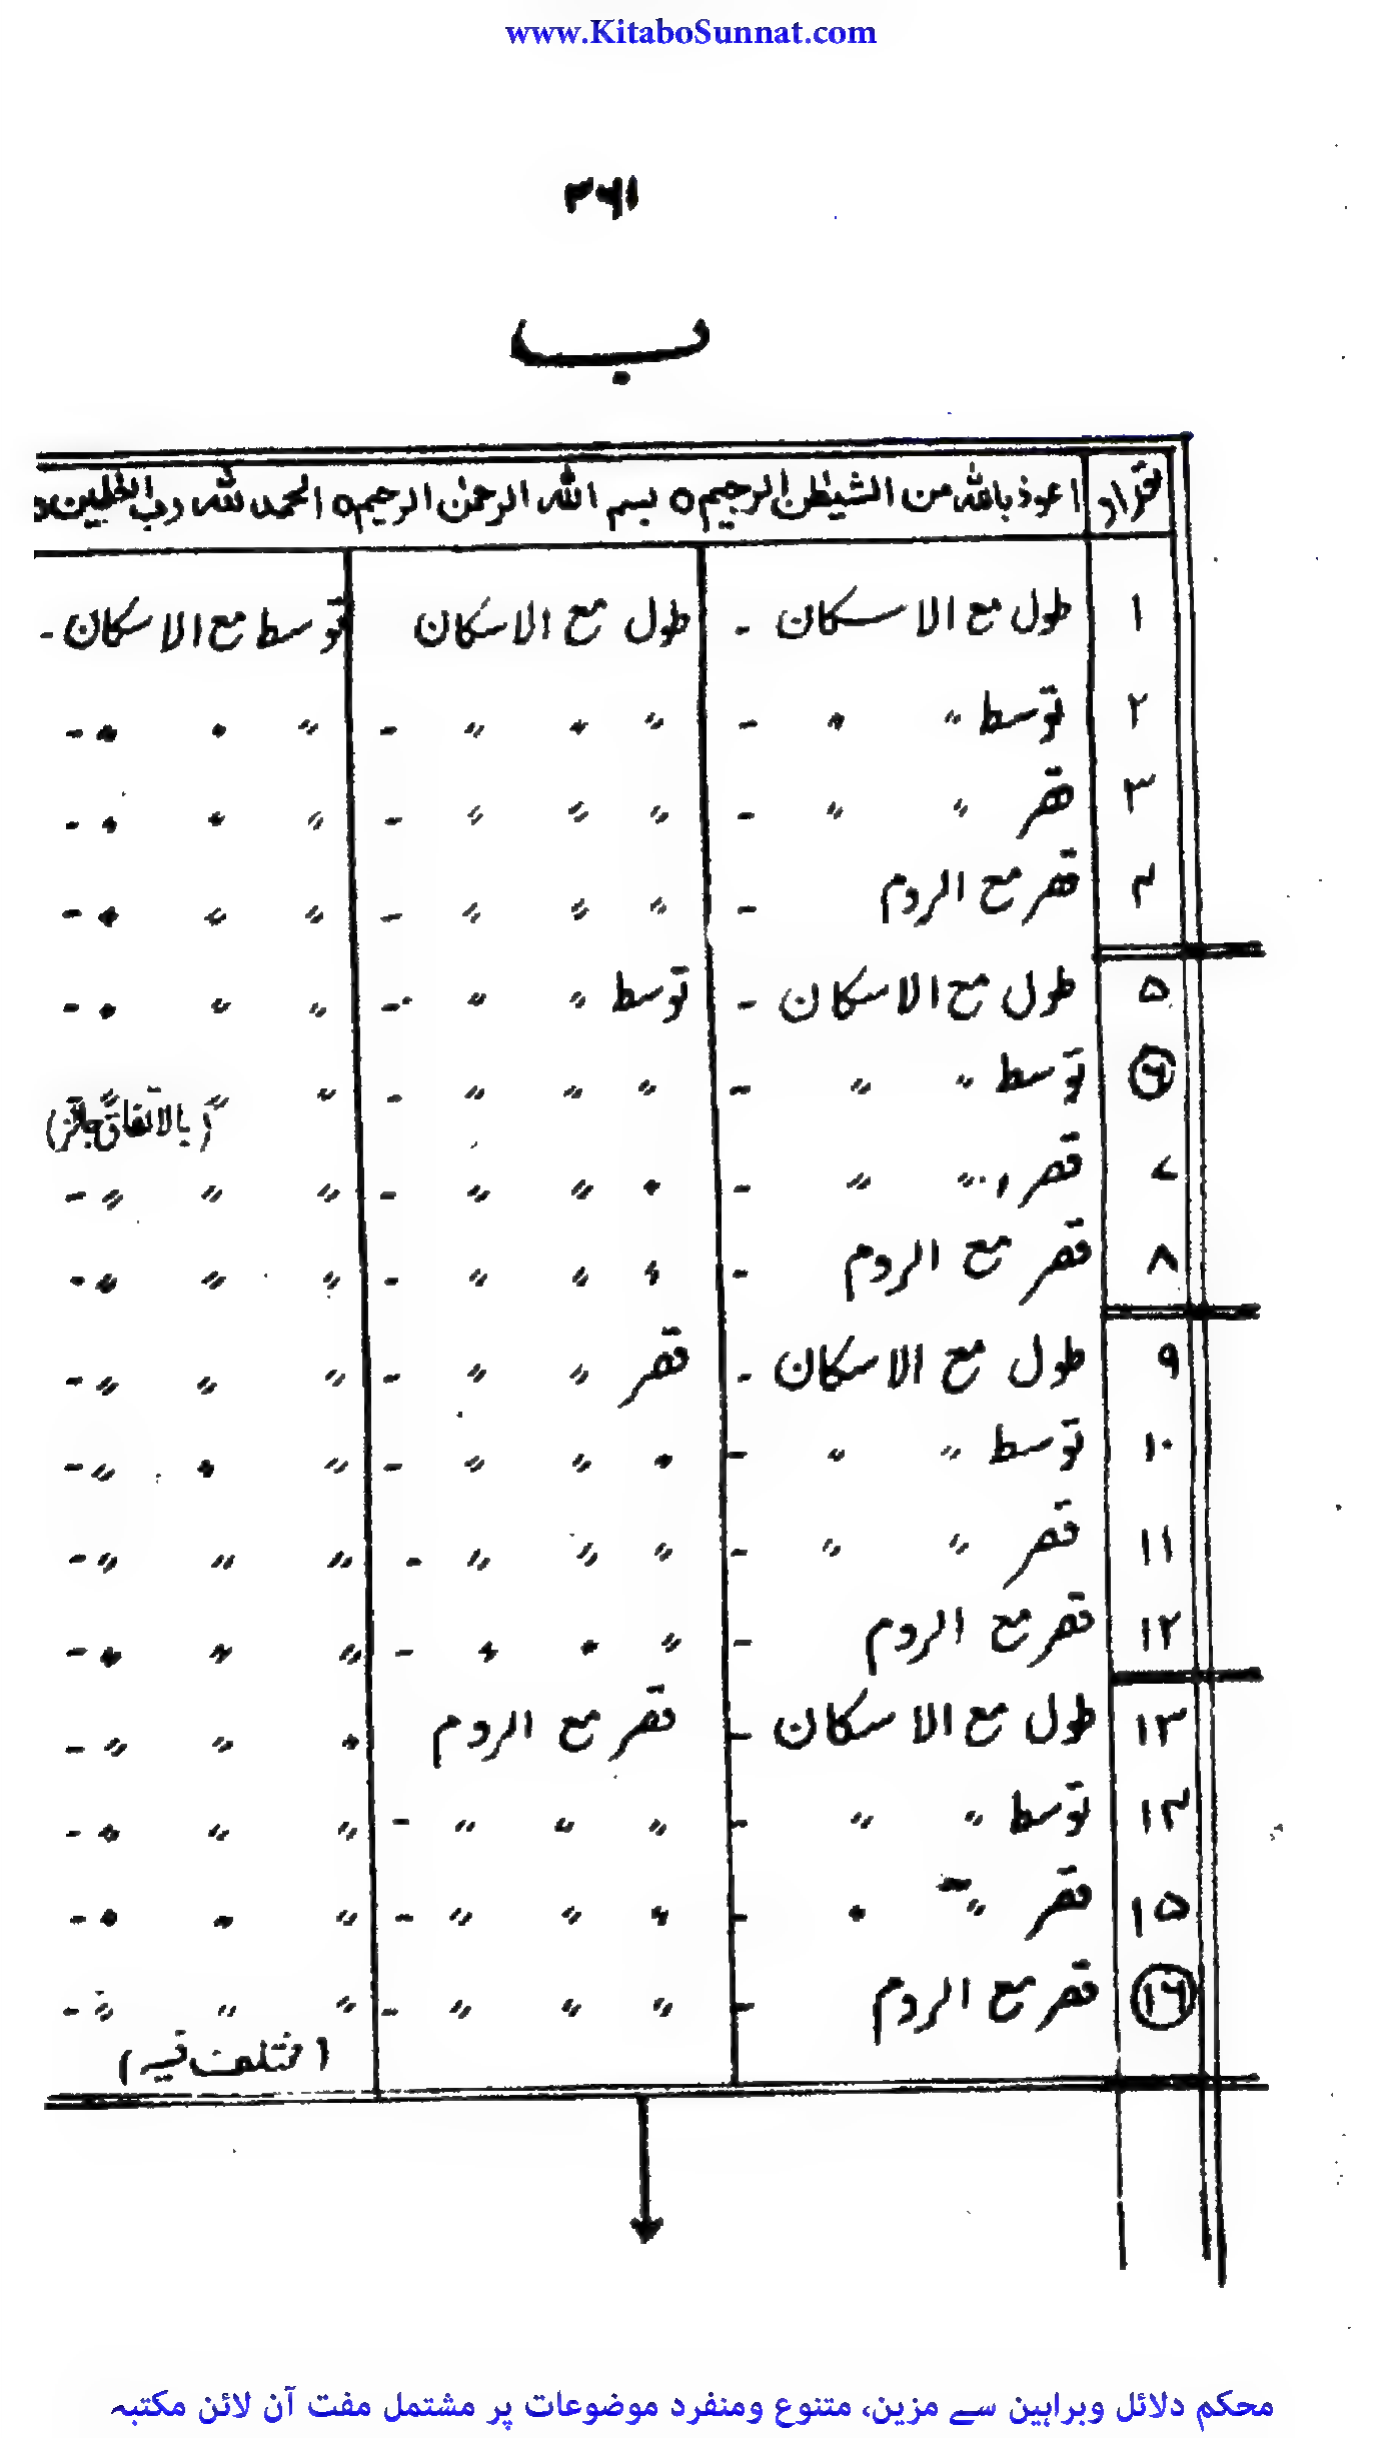 www.KitaboSunnat.com
۳۶۱
ب
تعداد اعوذ بالله من الشیطٰن الرجیم ہ بسم الله الرحمٰن الرحیم ہ الحمد لله رب العٰلمین ہ
۱ طول مع الاسکان - طول مع الاسکان توسط مع الاسکان -
۲ توسط 〃 〃 - 〃 〃 〃 - 〃 〃 〃 -
۳ قصر 〃 〃 - 〃 〃 〃 - 〃 〃 〃 -
۴ قصر مع الروم - 〃 〃 〃 - 〃 〃 〃 -
۵ طول مع الاسکان - توسط 〃 〃 - 〃 〃 〃 -
۶ توسط 〃 〃 - 〃 〃 〃 - 〃 〃 〃
(بالاتفاق جائز)
۷ قصر 〃 〃 - 〃 〃 〃 - 〃 〃 〃 -
۸ قصر مع الروم - 〃 〃 〃 - 〃 〃 〃 -
۹ طول مع الاسکان - قصر 〃 〃 - 〃 〃 〃 -
۱۰ توسط 〃 〃 - 〃 〃 〃 - 〃 〃 〃 -
۱۱ قصر 〃 〃 - 〃 〃 〃 - 〃 〃 〃 -
۱۲ قصر مع الروم - 〃 〃 〃 - 〃 〃 〃 -
۱۳ طول مع الاسکان - قصر مع الروم 〃 〃 〃 -
۱۴ توسط 〃 〃 - 〃 〃 〃 - 〃 〃 〃 -
۱۵ قصر 〃 〃 - 〃 〃 〃 - 〃 〃 〃 -
۱۶ قصر مع الروم - 〃 〃 〃 - 〃 〃 〃 -
(مختلف فیہ)
محکم دلائل وبراہین سے مزین، متنوع ومنفرد موضوعات پر مشتمل مفت آن لائن مکتبہ